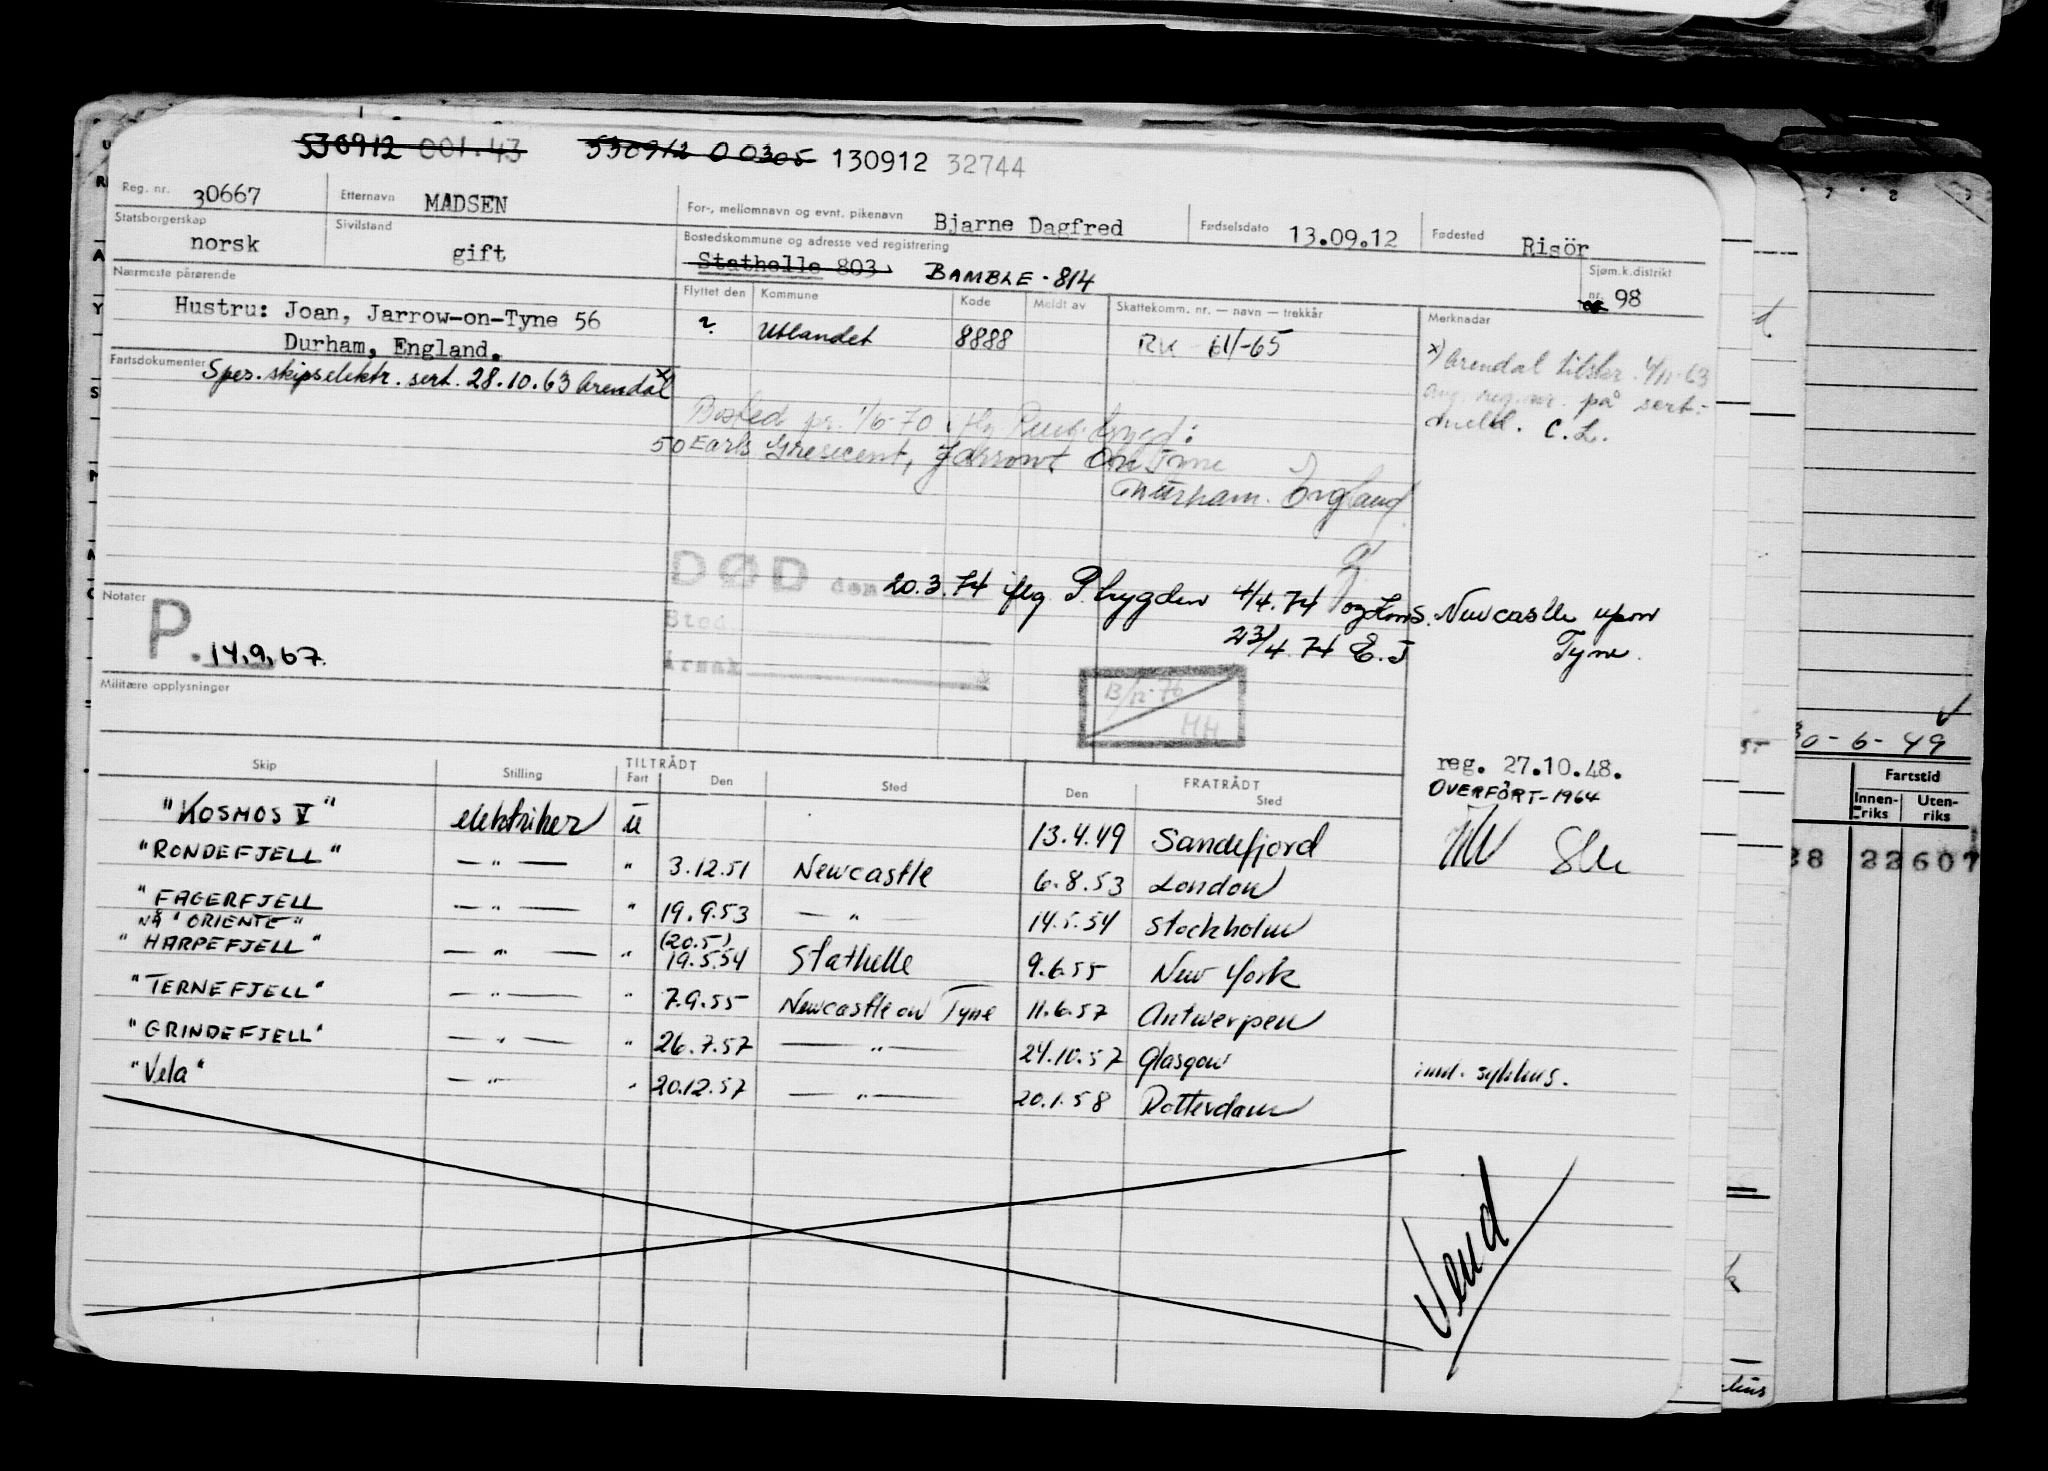 530912 001.43 530912 00305 130912 32744
Reg. nr. 30667 Etternavn MADSEN For-, mellomnavn og evnt. pikenavn Bjarne Dagfred Fødselsdato 13.09.12 Fødested Risör
Statsborgerskap norsk Sivilstand gift Bostedskommune og adresse ved registrering Stathelle 803 BAMBLE - 814 Sjøm.k.distrikt nr. 98
Nærmeste pårørende Flyttet den Kommune Kode Meldt av Skattekomm. nr. — navn — trekkår Merknader
Hustru: Joan, Jarrow-on-Tyne 56 ? Utlandet 8888 RK 61/-65
Durham, England.
x) Arendal tilskr. 4/11-63
ang. reg.nr. på sert.-
meld. C.L.
Fartsdokumenter Spes. skipselektr. sert. 28.10.63 Arendal x
Bosted pr. 1/6-70
50 Earls Gresecent, Jarrowt On Tyne
Durham. England.
DØD den 20.3.74 iflg P.trygden 4/4.74 og Kons. Newcastle upon
Sted 23/4.74 E.J Tyne.
Årsak
Notater
P. 14.9.67.
13/12-76
HH
Militære opplysninger
reg. 27.10.48.
OVERFÖRT-1964
Skip Stilling TILTRÅDT Fart Den Sted FRATRÅDT Den Sted
"KOSMOS V" elektriker U 13.4.49 Sandefjord
"RONDEFJELL" — " — " 3.12.51 Newcastle 6.8.53 London
"FAGERFJELL — " — " 19.9.53 — " 14.5.54 Stockholm
NÅ "ORIENTE"
"HARPEFJELL" — " — " (20.5) 19.5.54 Stathelle 9.6.55 New York
"TERNEFJELL" — " — " 7.9.55 Newcastle on Tyne 11.6.57 Antwerpen
"GRINDEFJELL" — " — " 26.7.57 — " — 24.10.57 Glasgow innl. sykehus.
"Vela" — " — " 20.12.57 — " — 20.1.58 Rotterdam
Vend
30-6-49
Fartstid
Innen-riks Uten-riks
38 22607